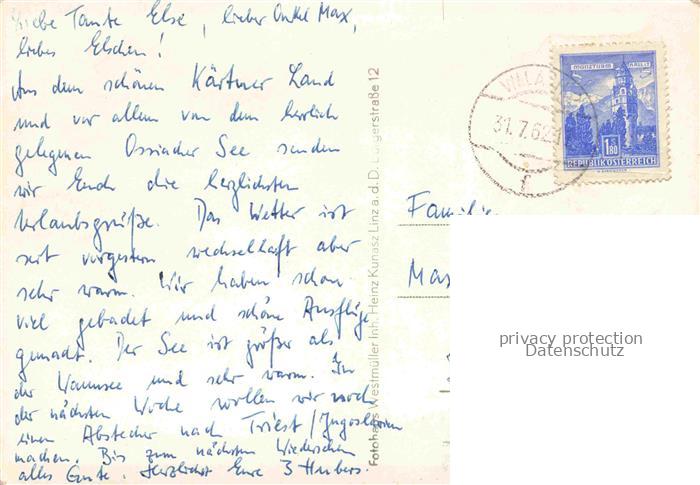 Liebe Tante Else, lieber Onkel Max,
liebes Elschen!
Aus dem schönen Kärtner Land
und vor allem von dem herrlich
gelegenen Ossiacher See senden
wir Euch die herzlichsten
Urlaubsgrüße. Das Wetter ist
seit vorgestern wechselhaft aber
sehr warm. Wir haben schon
viel gebadet und schöne Ausflüge
gemacht. Der See ist größer als
der Wannsee und sehr warm. In
der nächsten Woche wollen wir noch
einen Abstecher nach Triest/Jugoslavien
machen. Bis zum nächsten Wiedersehen
alles Gute. Herzlichst Eure 3 Hubers.
Fotohaus Westmüller Inh. Heinz Kunasz Linz a. d. D. Bürgerstraße 12
MÜNZTURM HALL I. T.
1.80
REPUBLIK ÖSTERREICH
VILLACH
31.7.62
f
Familie
Max
privacy protection
Datenschutz